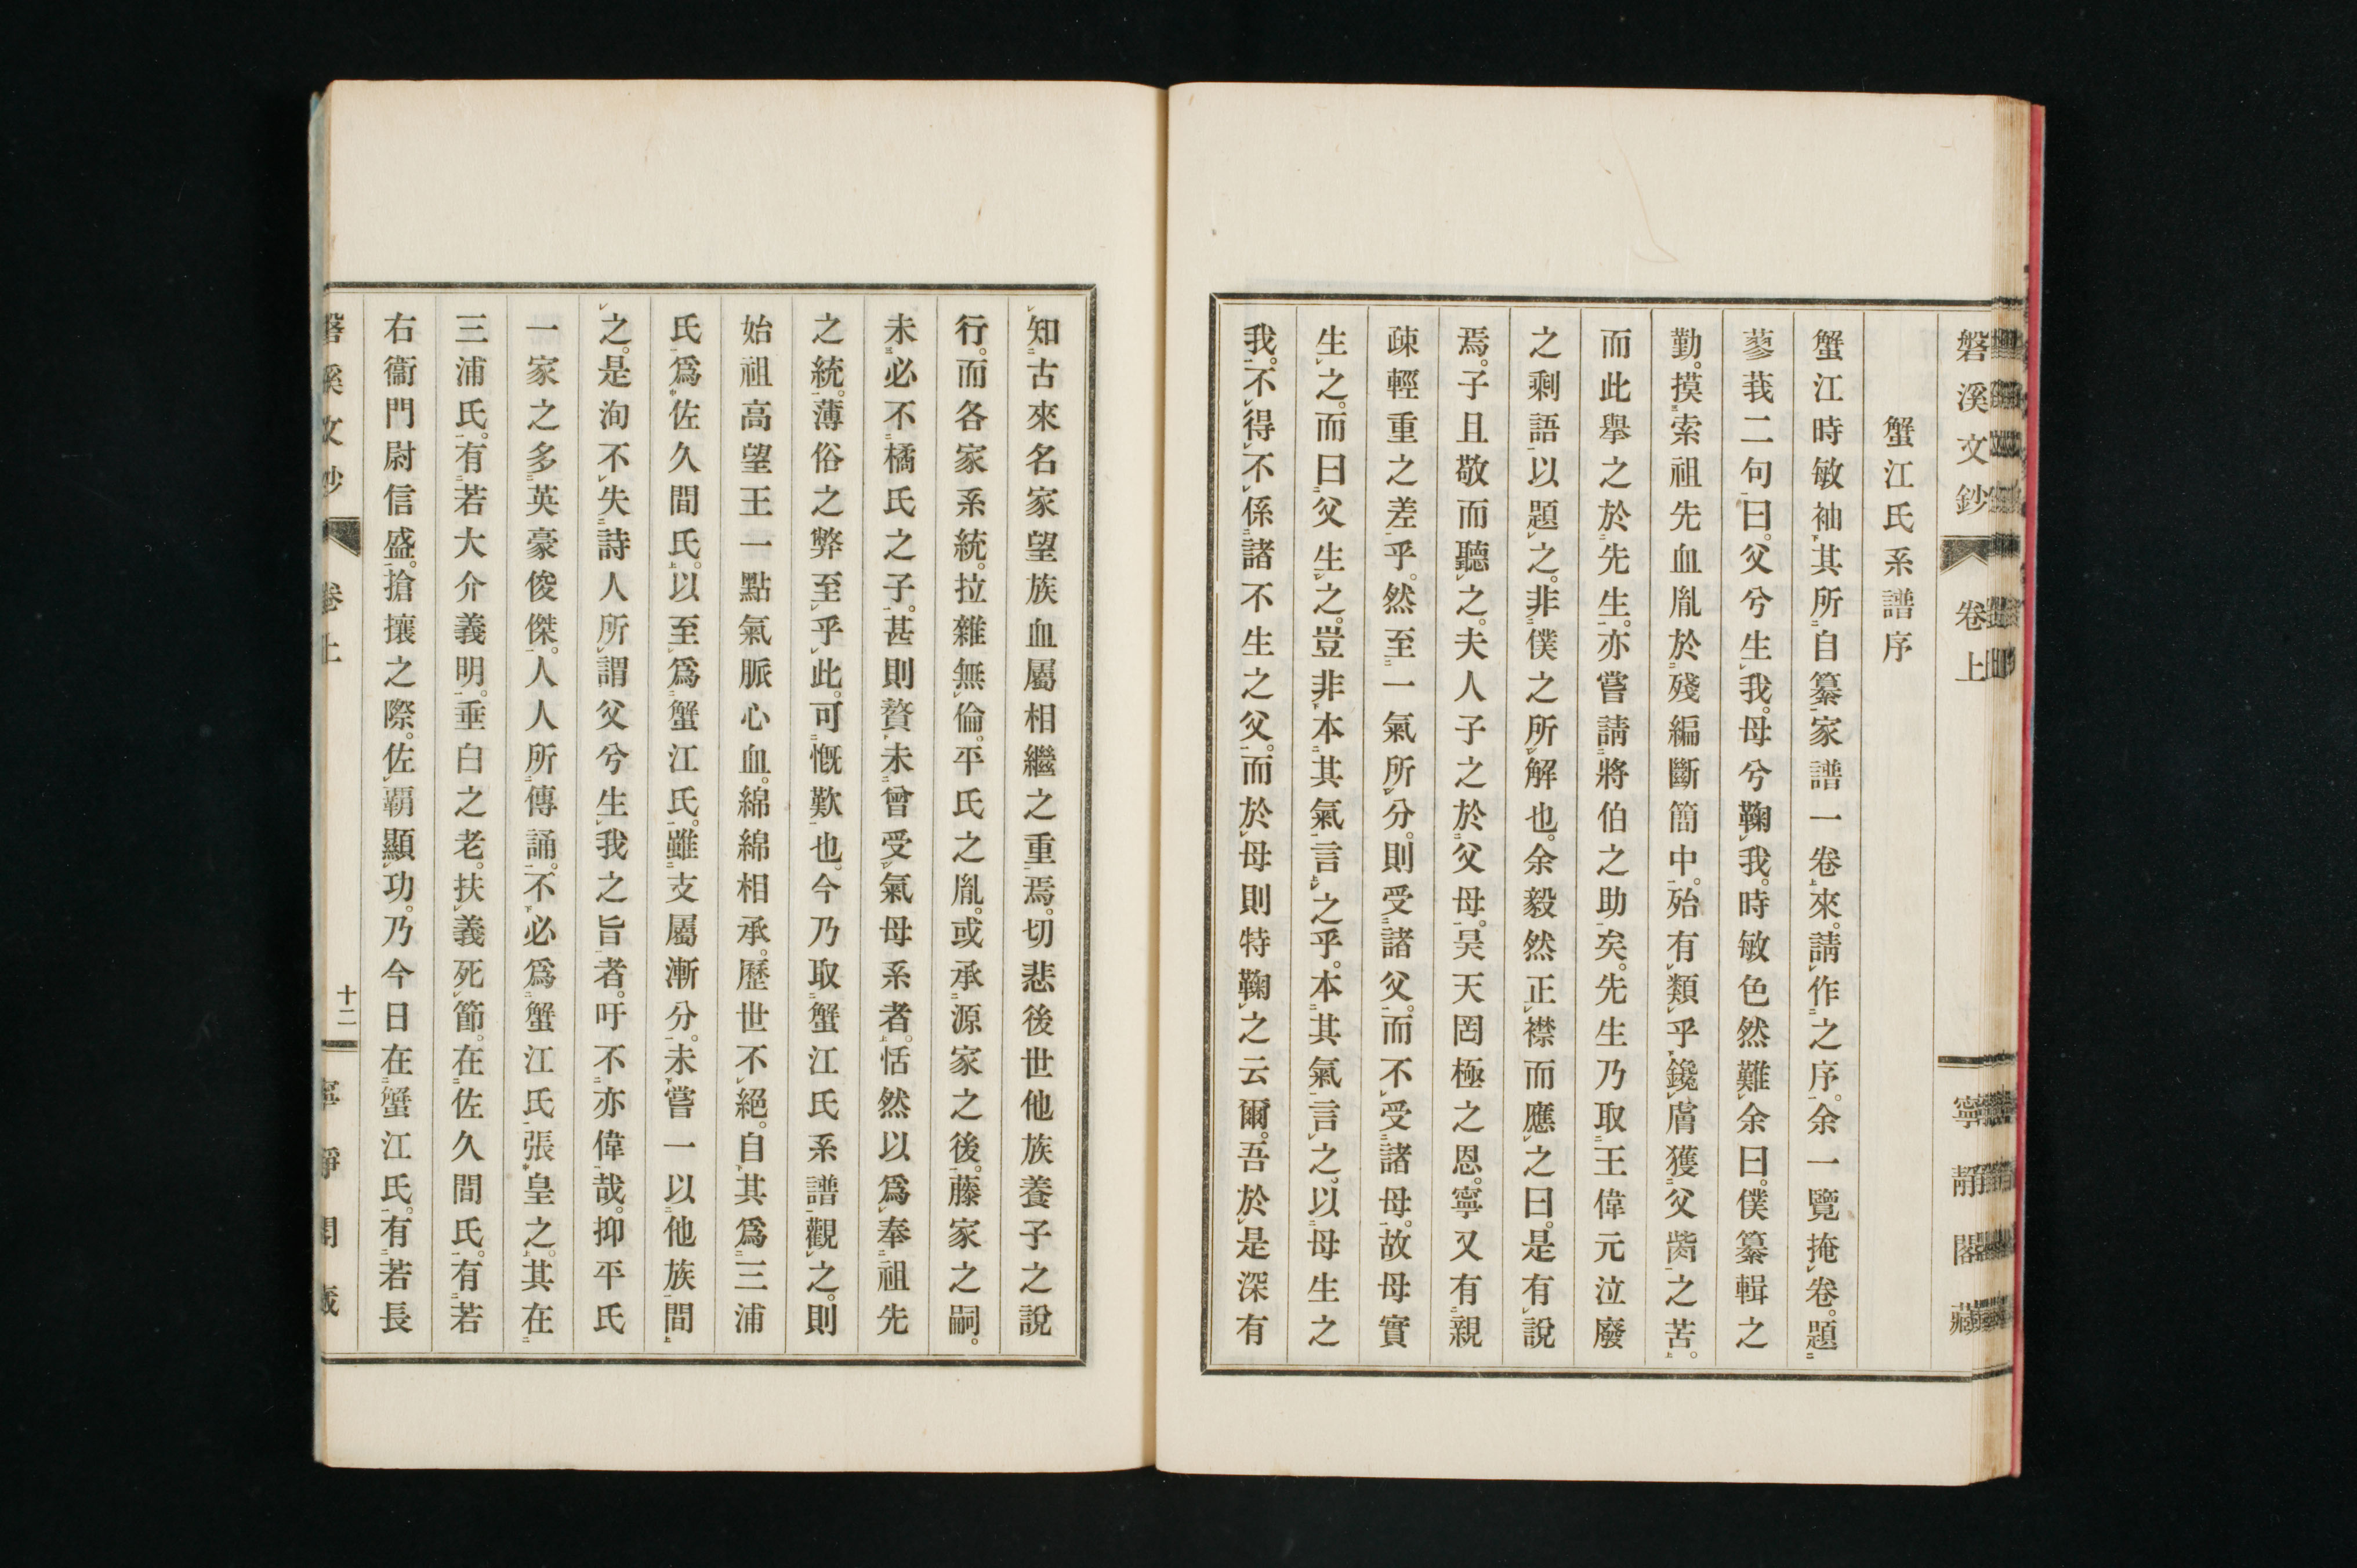 磐溪文鈔 卷上 寧靜閣藏
蟹江氏系譜序
蟹江時敏袖其所自纂家譜一卷來。請作之序。余一覽掩卷。題
蓼莪二句曰。父兮生我。母兮鞠我。時敏色然難余曰。僕纂輯之
勤。摸索祖先血胤於殘編斷簡中。殆有類乎鑱膚獲父胔之苦。
而此舉之於先生。亦嘗請將伯之助矣。先生乃取王偉元泣廢
之剩語以題之。非僕之所解也。余毅然正襟而應之曰。是有說
焉。子且敬而聽之。夫人子之於父母。昊天罔極之恩。寧又有親
疎輕重之差乎。然至一氣所分。則受諸父。而不受諸母。故母實
生之。而曰父生之。豈非本其氣言之乎。本其氣言之。以母生之
我。不得不係諸不生之父。而於母則特鞠之云爾。吾於是深有
知古來名家望族血屬相繼之重焉。切悲後世他族養子之說
行。而各家系統。拉雜無倫。平氏之胤。或承源家之後。藤家之嗣。
未必不橘氏之子。甚則贅未曾受氣母系者。恬然以爲奉祖先
之統。薄俗之弊至乎此。可慨歎也。今乃取蟹江氏系譜觀之。則
始祖高望王一點氣脈心血。綿綿相承。歷世不絕。自其爲三浦
氏爲佐久間氏。以至爲蟹江氏。雖支屬漸分。未嘗一以他族間
之。是洵不失詩人所謂父兮生我之旨者。吁不亦偉哉。抑平氏
一家之多英豪俊傑。人人所傳誦。不必爲蟹江氏張皇之。其在
三浦氏。有若大介義明。垂白之老。扶義死節。在佐久間氏。有若
右衞門尉信盛。搶攘之際。佐霸顯功。乃今日在蟹江氏。有若長
磐溪文鈔 卷上 十二 寧靜閣藏